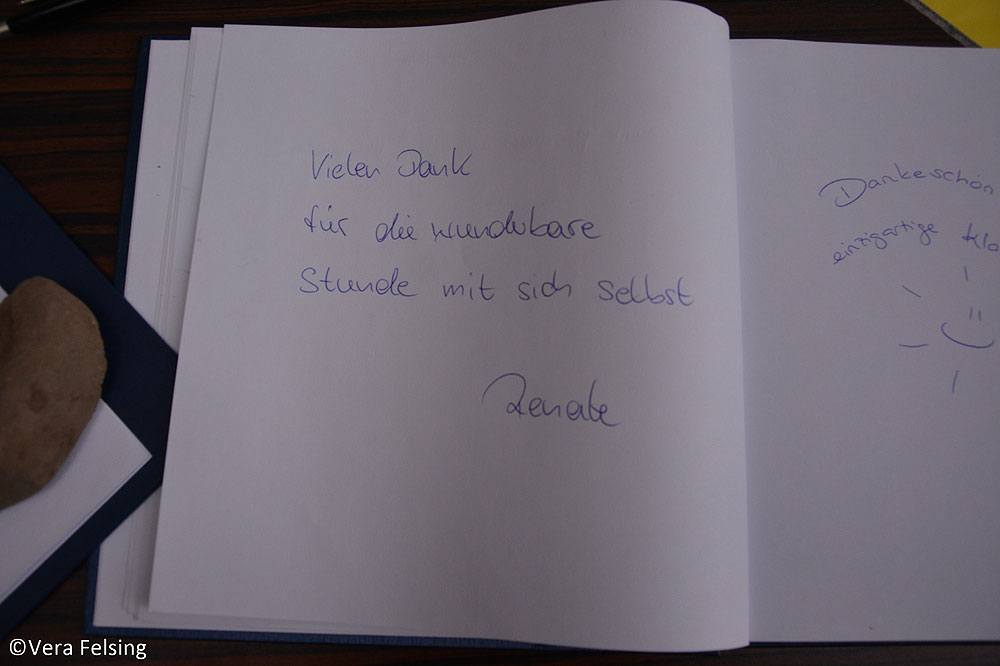 Vielen Dank
für die wunderbare
Stunde mit sich selbst
Renate
Dankeschön
einzigartige Kla
©Vera Felsing